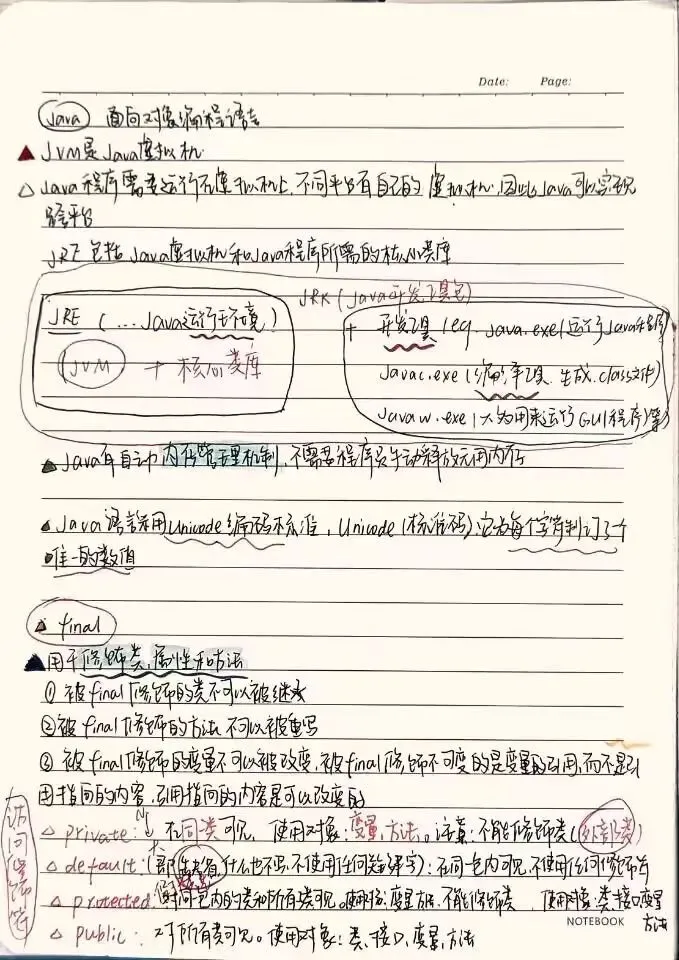 Date: Page:
Java 面向对象编程语言
JVM是Java虚拟机.
Java程序需要运行在虚拟机上,不同平台有自己的虚拟机,因此Java可以实现
跨平台
JRE包括Java虚拟机和Java程序所需的核心类库
JRK(Java开发工具包)
JRE (...Java运行环境)
+ 开发工具(eg. java.exe(运行Java程序)
JVM + 核心类库
Javac.exe(编译工具.生成.class文件)
Javaw.exe(大多用来运行GUI程序)等)
Java有自动内存管理机制,不需要程序员手动释放无用内存
Java语言采用Unicode编码标准,Unicode(标准码),它为每个字符制订了一个
唯一的数值
final
用于修饰类.属性和方法
①被final修饰的类不可以被继承
②被final修饰的方法不可以被重写
③被final修饰的变量不可以被改变,被final修饰不可变的是变量的引用,而不是引
用指向的内容,引用指向的内容是可以改变的
访问修饰符
private: 在同类可见, 使用对象:变量,方法。注意:不能修饰类(外部类)
default:( 什么也不写,不使用任何关键字):在同一包内可见,不使用任何修饰符
protected: 对同包内的类和所有类可见。使用对象:变量方法.不能修饰类 使用对象:类.接口.变量
方法
public: 对所有类可见。使用对象:类,接口,变量,方法
NOTEBOOK